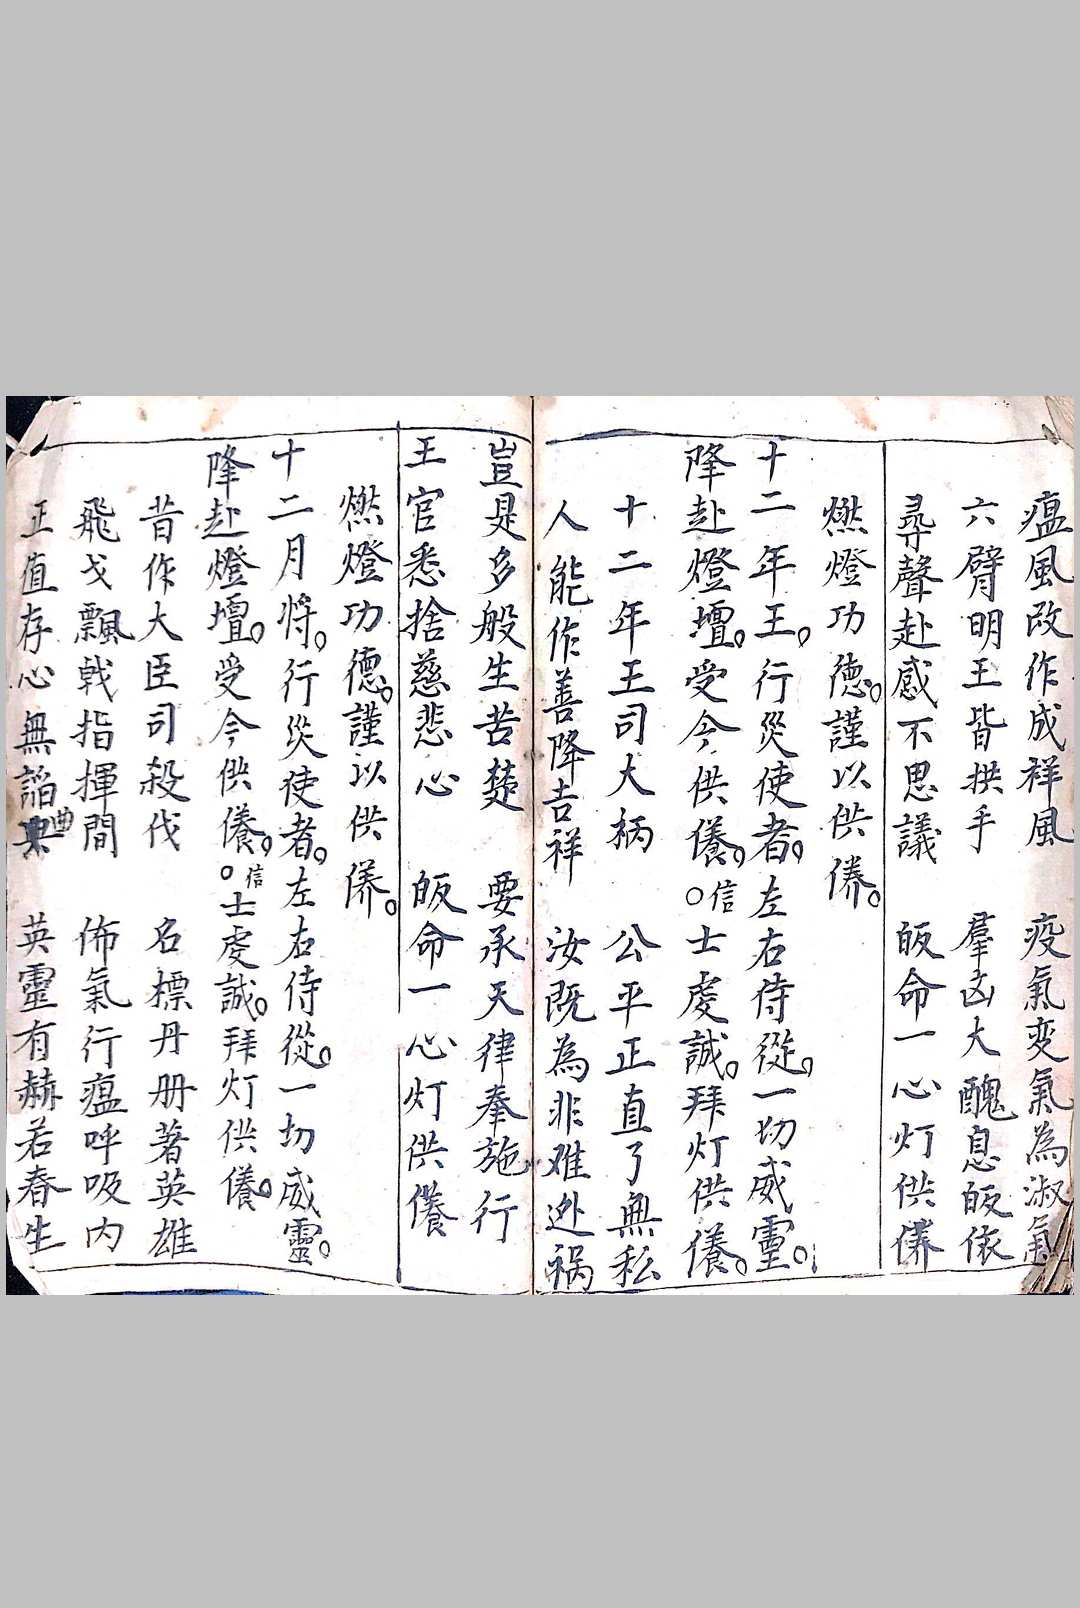 瘟風改作成祥風　疫氣变氣為淑氣
六臂明王皆拱手　羣凶大醜息皈依
尋聲赴感不思議　皈命一心灯供養
燃燈功德。謹以供養。
十二年王。行災使者。左右侍從。一切威靈。
降赴燈壇。受今供養。○信士虔誠。拜灯供養。
十二年王司大柄　公平正直了無私
人能作善降吉祥　汝既為非难逊祸
豈是多般生苦楚　要承天律奉施行
王官悉捨慈悲心　皈命一心灯供養
燃燈功德。謹以供養。
十二月将。行災使者。左右侍從。一切威靈。
降赴燈壇。受今供養。○信士虔誠。拜灯供養。
昔作大臣司殺伐　名標丹册著英雄
飛戈飄戟指揮間　佈氣行瘟呼吸内
正值存心無諂曲　英靈有赫若春生